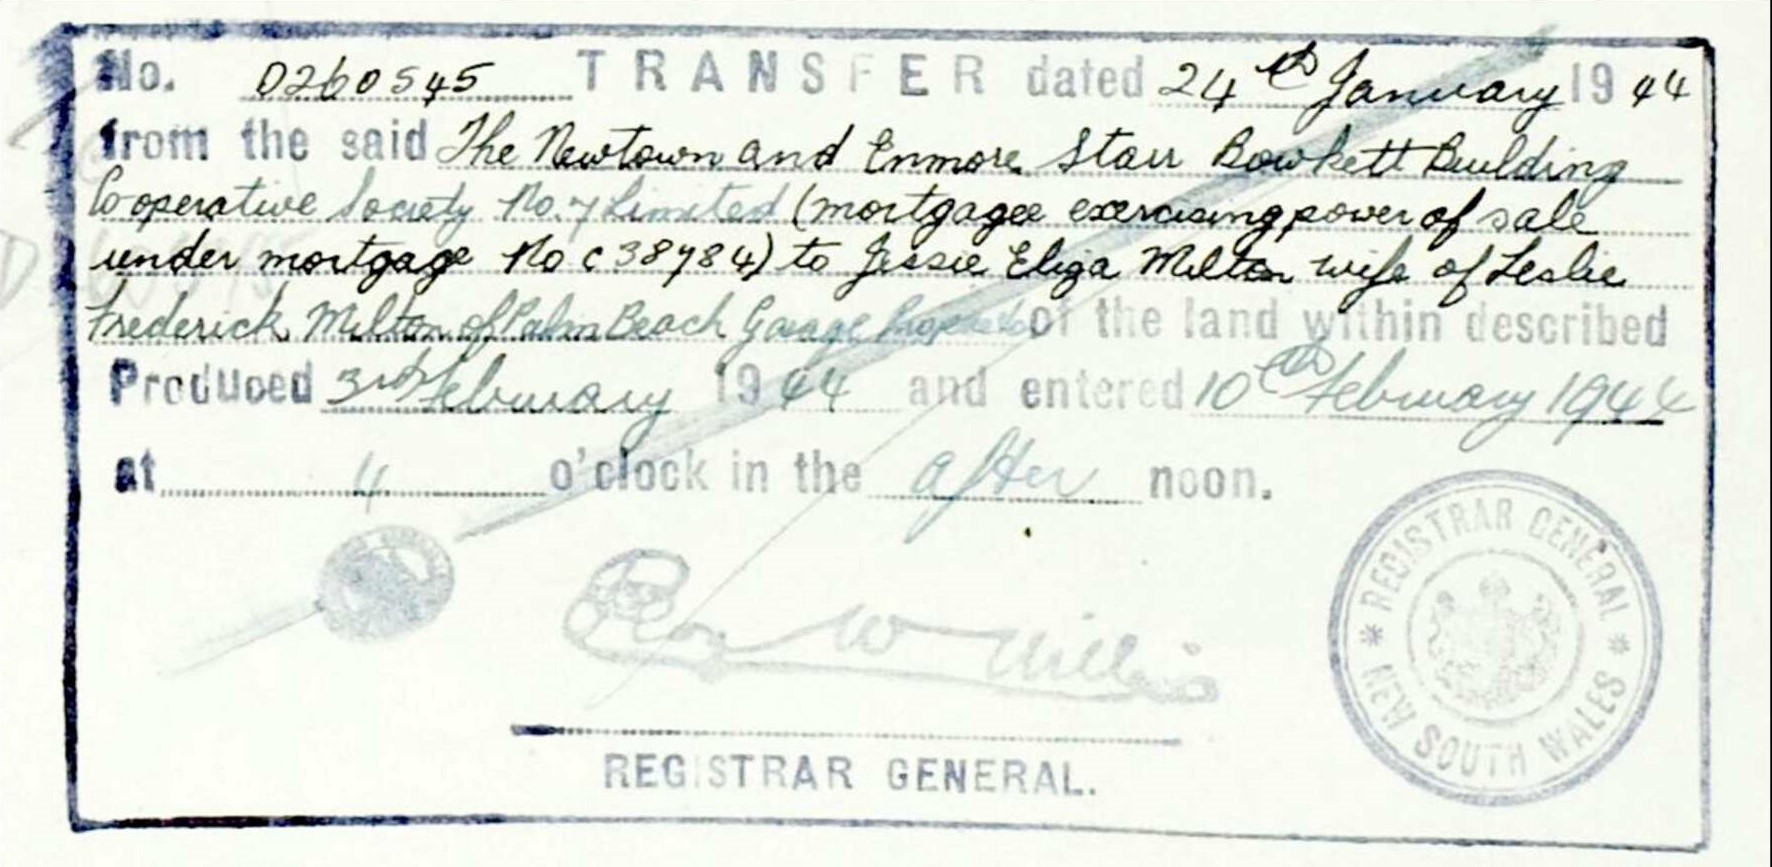 No. D260545 TRANSFER dated 24th January 1944
from the said The Newtown and Enmore Starr Bowkett Building
Cooperative Society No. 7 Limited (mortgagee exercising power of sale
under mortgage No C38784) to Jessie Eliza Milton wife of Leslie
Frederick Milton of Palm Beach Garage Proprietor of the land within described
Produced 3rd February 1944 and entered 10th February 1944
at 4 o'clock in the after noon.
REGISTRAR GENERAL.
* REGISTRAR GENERAL *
NEW SOUTH WALES